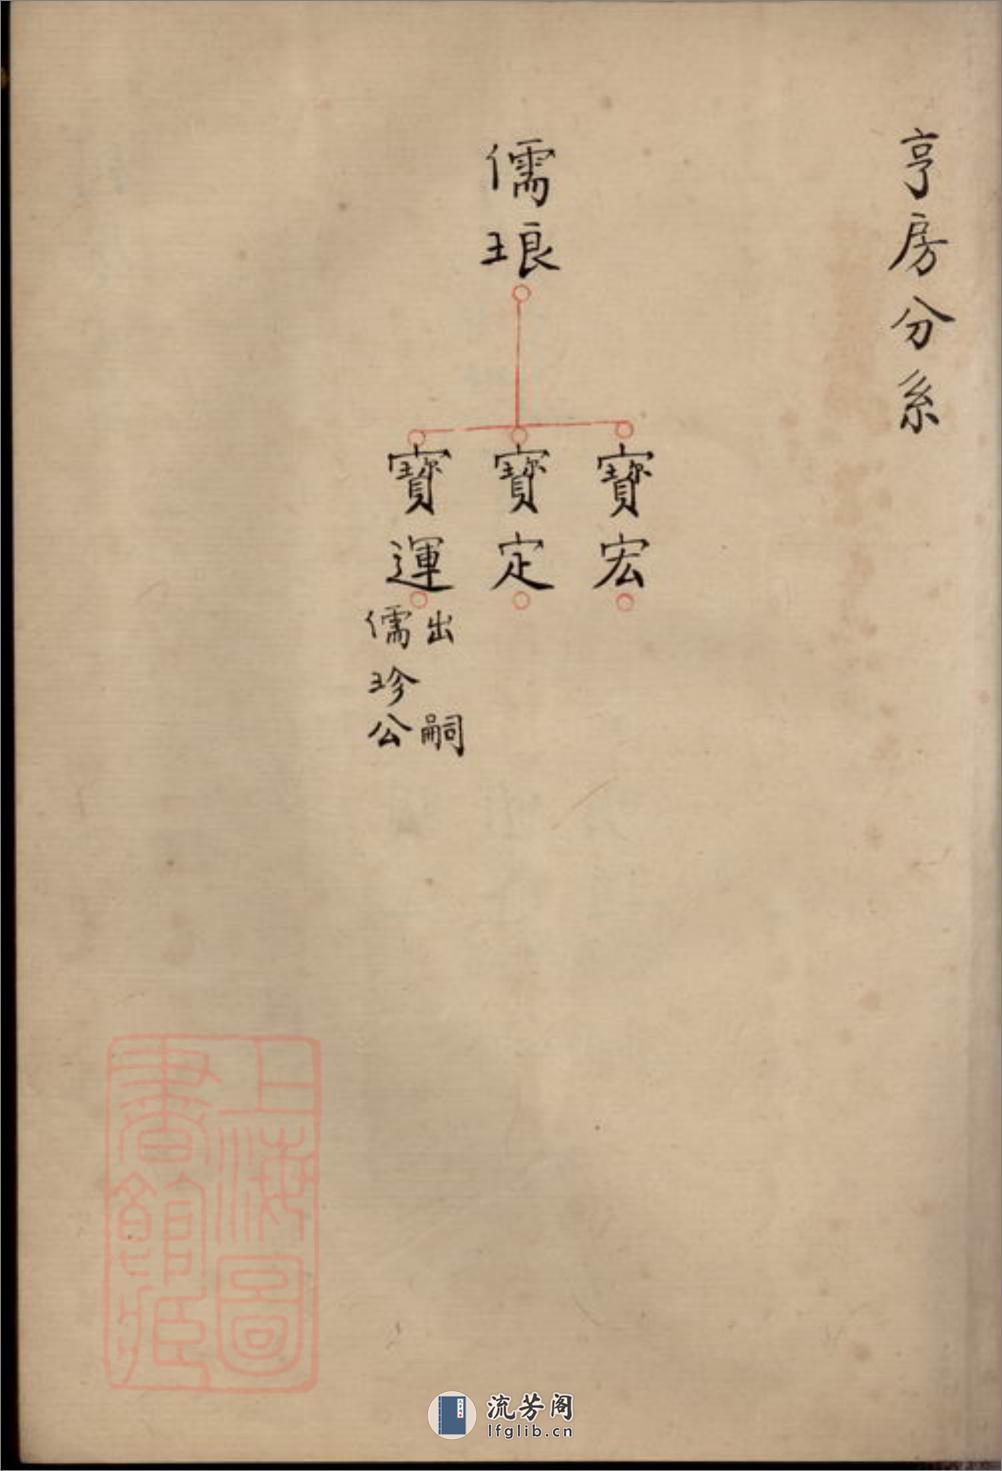 亨房分系
儒琅
寶宏
寶定
寶運
出嗣
儒珍公
上海圖
書館藏
流芳阁
lfglib.cn